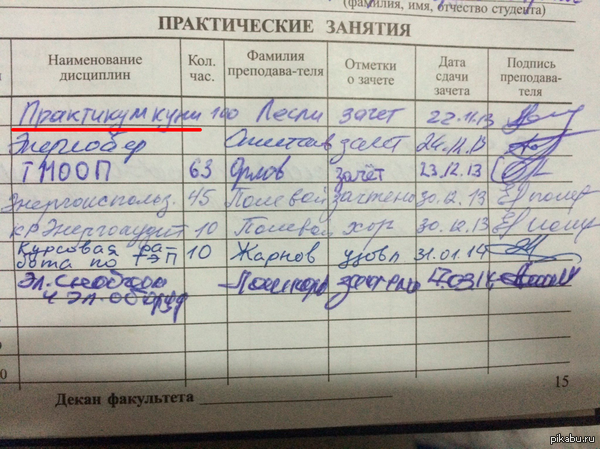 (фамилия, имя, отчество студента)
ПРАКТИЧЕСКИЕ ЗАНЯТИЯ
Наименование дисциплин Кол. час. Фамилия преподава-теля Отметки о зачете Дата сдачи зачета Подпись преподава-теля
Практикум куни 100 Лесли зачет 22.11.13
Энергосбер зачет 24.12.13
ТМООП 63 Орлов зачёт 23.12.13
Энергоиспольз. 45 Полевой зачтено 30.12.13
КР Энергоаудит 10 Полевой хор 30.12.13
Курсовая ра- 10 Жарнов удовл 31.01.14
бота по ТЭП
Эл. снабжен
и эл. оборуд
15
Декан факультета
pikabu.ru